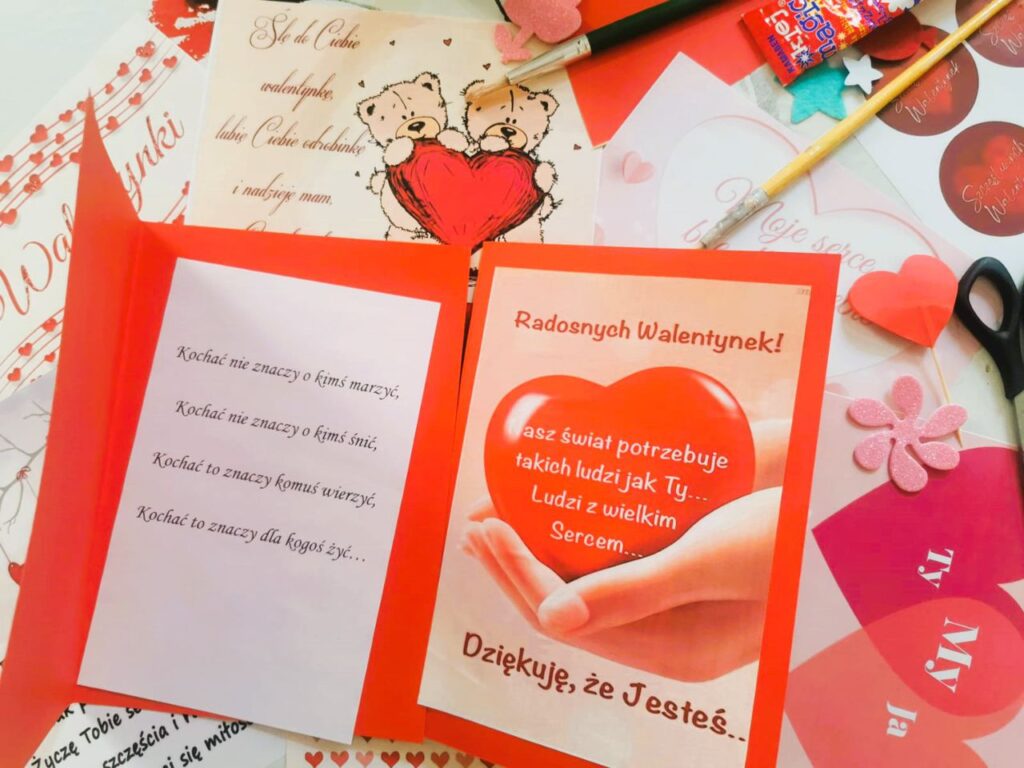 Ślę do Ciebie
walentynkę,
lubię Ciebie odrobinkę
i nadzieję mam,
Walentynki
magic
Moje serce
Szczęśliwych
Walentynek
Kochać nie znaczy o kimś marzyć,
Kochać nie znaczy o kimś śnić,
Kochać to znaczy komuś wierzyć,
Kochać to znaczy dla kogoś żyć...
Radosnych Walentynek!
asz świat potrzebuje
takich ludzi jak Ty...
Ludzi z wielkim
Sercem...
Dziękuję, że Jesteś..
Ty
My
Ja
Życzę Tobie
szczęścia i
się miłoś